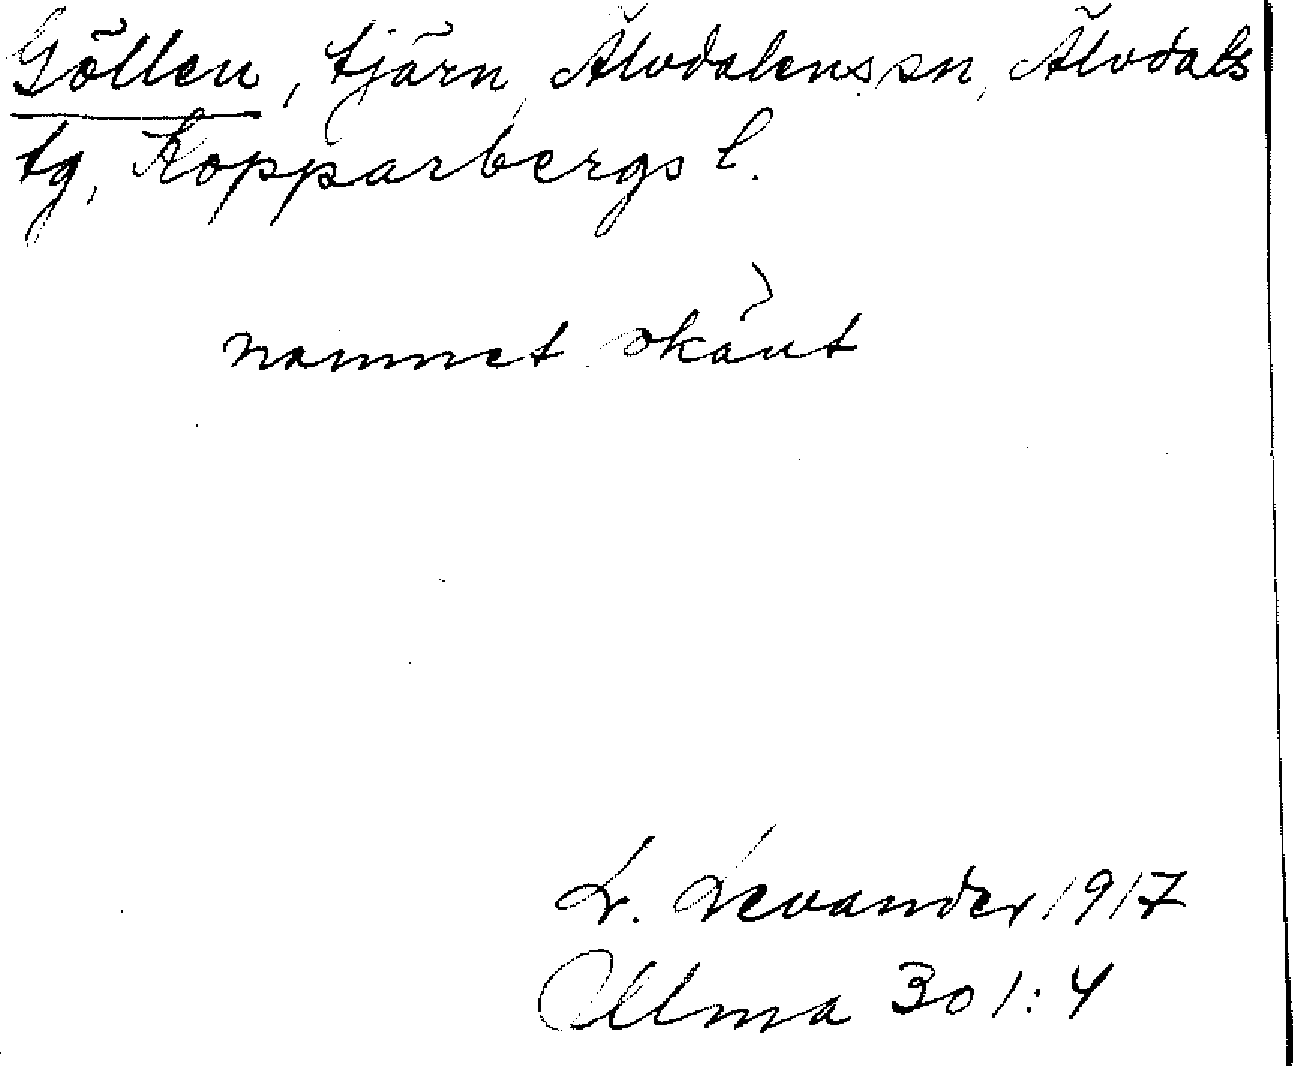 Göllen, tjärn, Älvdalens sn, Älvdals
tg, Kopparbergs l.
namnet okänt
L. Levander 1917
Ulma 301:4